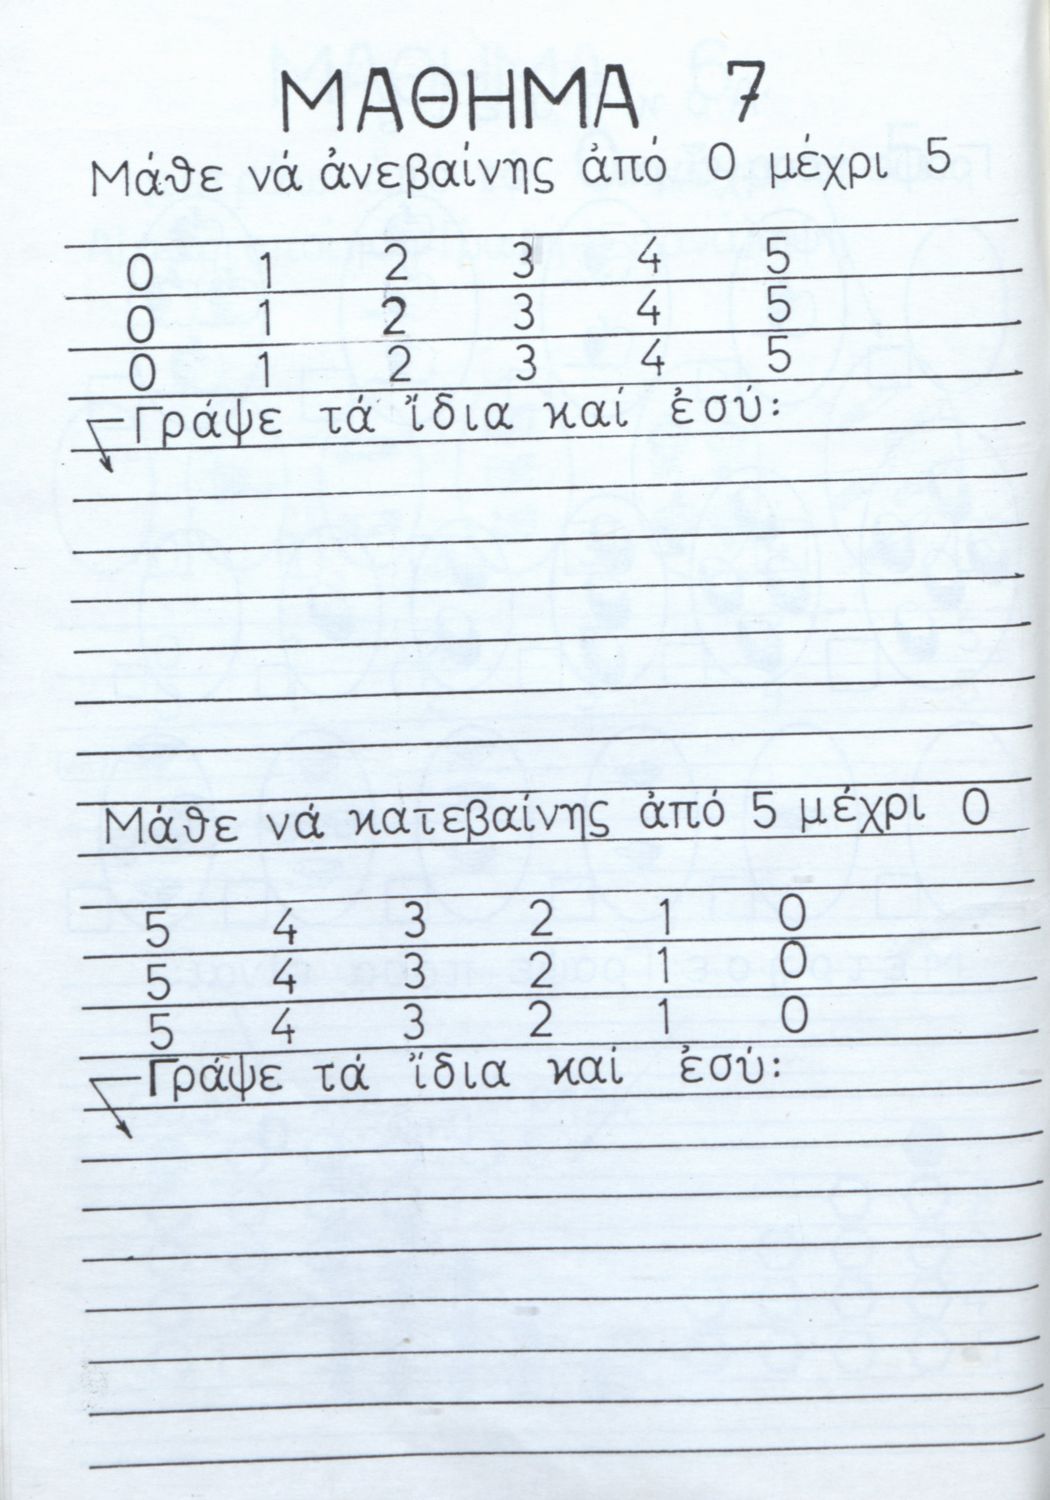 ΜΑΘΗΜΑ 7
Μάθε νά ἀνεβαίνης ἀπό 0 μέχρι 5
0 1 2 3 4 5
0 1 2 3 4 5
0 1 2 3 4 5
Γράψε τά ἴδια καί ἐσύ:
Μάθε νά κατεβαίνης ἀπό 5 μέχρι 0
5 4 3 2 1 0
5 4 3 2 1 0
5 4 3 2 1 0
Γράψε τά ἴδια καί ἐσύ: